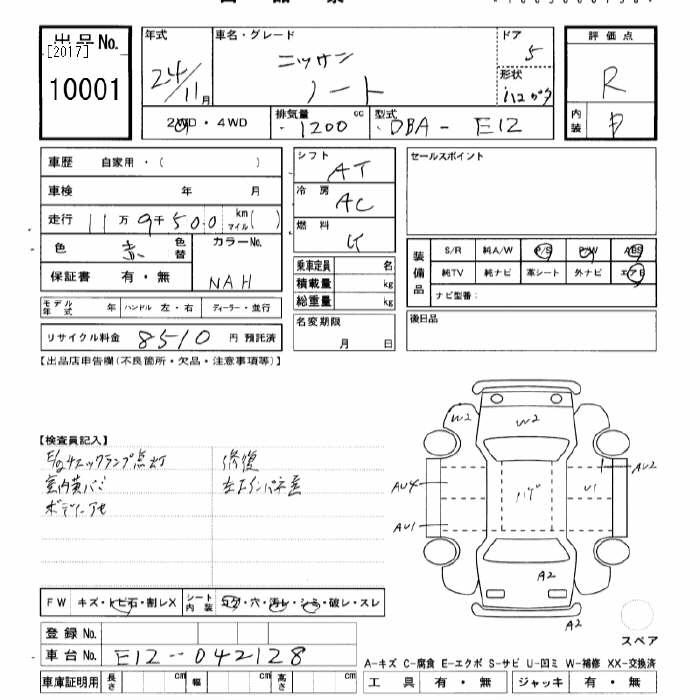 出品No.
[2017]
10001
年式
24/11月
車名・グレード
ニッサン
ノート
ドア
5
形状
評価点
R
内装
D
2WD・4WD
排気量 1200 cc
型式 DBA-E12
車歴 自家用・( )
車検 年 月
走行 11万9千500 km マイル( )
色 赤 色替
カラーNo. NAH
保証書 有・無
モデル年式 年 ハンドル 左・右 ディーラー・並行
リサイクル料金 8510 円 預託済
シフト AT
冷房 AC
燃料 G
乗車定員 名
積載量 kg
総重量 kg
名変期限
月 日
セールスポイント
装備品
S/R 純A/W P/S P/W ABS
純TV 純ナビ 革シート 外ナビ エアB
ナビ型番:
後日品
【出品店申告欄(不良箇所・欠品・注意事項等)】
【検査員記入】
E/gチェックランプ点灯
ボデー
修復
W2
W2
AU4
AU1
ハゲ
U1
AU2
A2
A2
スペア
FW キズ・トビ石・割レX
シート内装 コゲ・穴・汚レ・シミ・破レ・スレ
登録No.
車台No. E12-042128
車庫証明用 長さ cm 幅 cm 高さ cm
A-キズ C-腐食 E-エクボ S-サビ U-凹ミ W-補修 XX-交換済
工具 有・無 ジャッキ 有・無